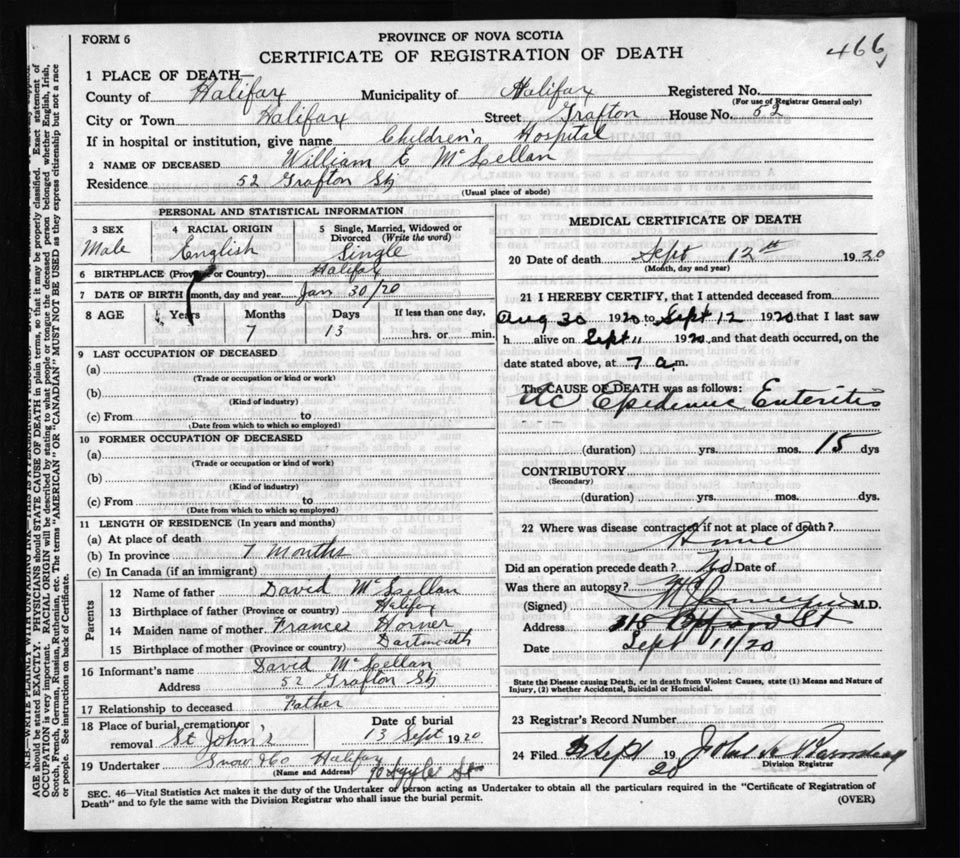 FORM 6
PROVINCE OF NOVA SCOTIA
CERTIFICATE OF REGISTRATION OF DEATH
466
1 PLACE OF DEATH—
County of Halifax Municipality of Halifax Registered No.
(For use of Registrar General only)
City or Town Halifax Street Grafton House No. 52
If in hospital or institution, give name Children's Hospital
2 NAME OF DECEASED William E McLellan
Residence 52 Grafton St
(Usual place of abode)
PERSONAL AND STATISTICAL INFORMATION
3 SEX Male
4 RACIAL ORIGIN English
5 Single, Married, Widowed or Divorced (Write the word) Single
6 BIRTHPLACE (Province or Country) Halifax
7 DATE OF BIRTH (month, day and year) Jan 30/20
8 AGE Years Months Days If less than one day,
7 13 hrs. or min.
9 LAST OCCUPATION OF DECEASED
(a)
(Trade or occupation or kind or work)
(b)
(Kind of industry)
(c) From to
(Date from which to which so employed)
10 FORMER OCCUPATION OF DECEASED
(a)
(Trade or occupation or kind of work)
(b)
(Kind of industry)
(c) From to
(Date from which to which so employed)
11 LENGTH OF RESIDENCE (In years and months)
(a) At place of death
(b) In province 7 Months
(c) In Canada (if an immigrant)
Parents
12 Name of father David McLellan
13 Birthplace of father (Province or country) Halifax
14 Maiden name of mother Frances Horner
15 Birthplace of mother (Province or country) Dartmouth
16 Informant's name David McLellan
Address 52 Grafton St
17 Relationship to deceased Father
18 Place of burial, cremation or removal St John's
Date of burial 13 Sept 1920
19 Undertaker Snow & Co Halifax
(Name and Address) Argyle St
MEDICAL CERTIFICATE OF DEATH
20 Date of death Sept 12th 1920
(Month, day and year)
21 I HEREBY CERTIFY, that I attended deceased from
Aug 30 1920 to Sept 12 1920 that I last saw
h alive on Sept 11 1920, and that death occurred, on the
date stated above, at 7 a.m.
The CAUSE OF DEATH was as follows:
Epidemic Enteritis
(duration) yrs. mos. 15 dys
CONTRIBUTORY
(Secondary)
(duration) yrs. mos. dys.
22 Where was disease contracted if not at place of death?
Home
Did an operation precede death? No Date of
Was there an autopsy?
(Signed) M.D.
Address St
Date Sept 11/20
State the Disease causing Death, or in death from Violent Causes, state (1) Means and Nature of
Injury, (2) whether Accidental, Suicidal or Homicidal.
23 Registrar's Record Number
24 Filed Sept 1920
Division Registrar
SEC. 46—Vital Statistics Act makes it the duty of the Undertaker or person acting as Undertaker to obtain all the particulars required in the "Certificate of Registration of
Death" and to fyle the same with the Division Registrar who shall issue the burial permit.
(OVER)
AGE should be stated EXACTLY. PHYSICIANS should STATE CAUSE OF DEATH in plain terms, so that it may be properly classified. Exact statement of
OCCUPATION is very important. RACIAL ORIGIN will be described by stating to what people or tongue the deceased person belonged whether English, Irish,
Scotch, French, German, Russian, Ruthenian, etc. The terms "AMERICAN" OR "CANADIAN" MUST NOT BE USED as they express citizenship but not a race
or people. See instructions on back of Certificate.